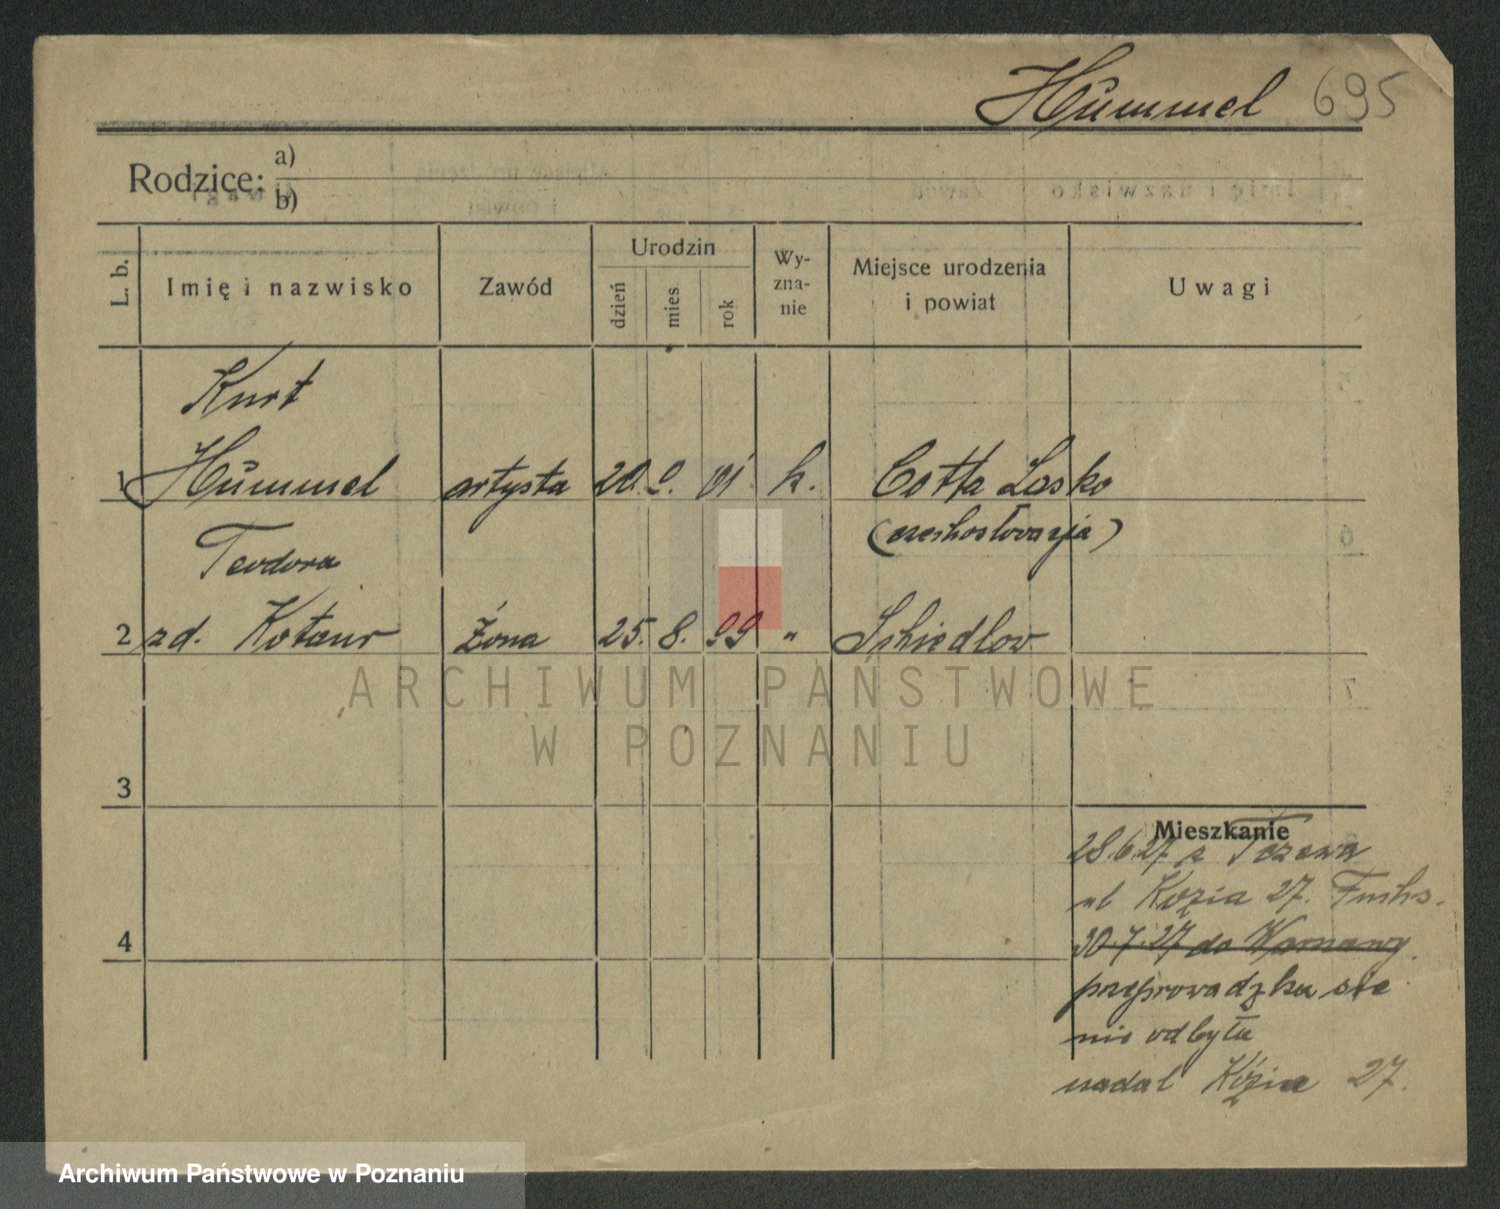 Hümmel 695
Rodzice:
a)
b)
L. b.
Imię i nazwisko
Zawód
Urodzin
dzień
mies
rok
Wy-
zna-
nie
Miejsce urodzenia
i powiat
Uwagi
Kurt
1 Hümmel artysta 20. 01 k. Cotta
Teodora
2 zd. żona 25. 8. 99 " Schiedlow
3
4
Mieszkanie
28.6.27 z Tczewa
ul Kozia 27. Fuchs.
30.7.27 do Warszawy
przeprowadzka sie
nie odbyła
nadal Kozia 27.
ARCHIWUM PAŃSTWOWE
W POZNANIU
Archiwum Państwowe w Poznaniu